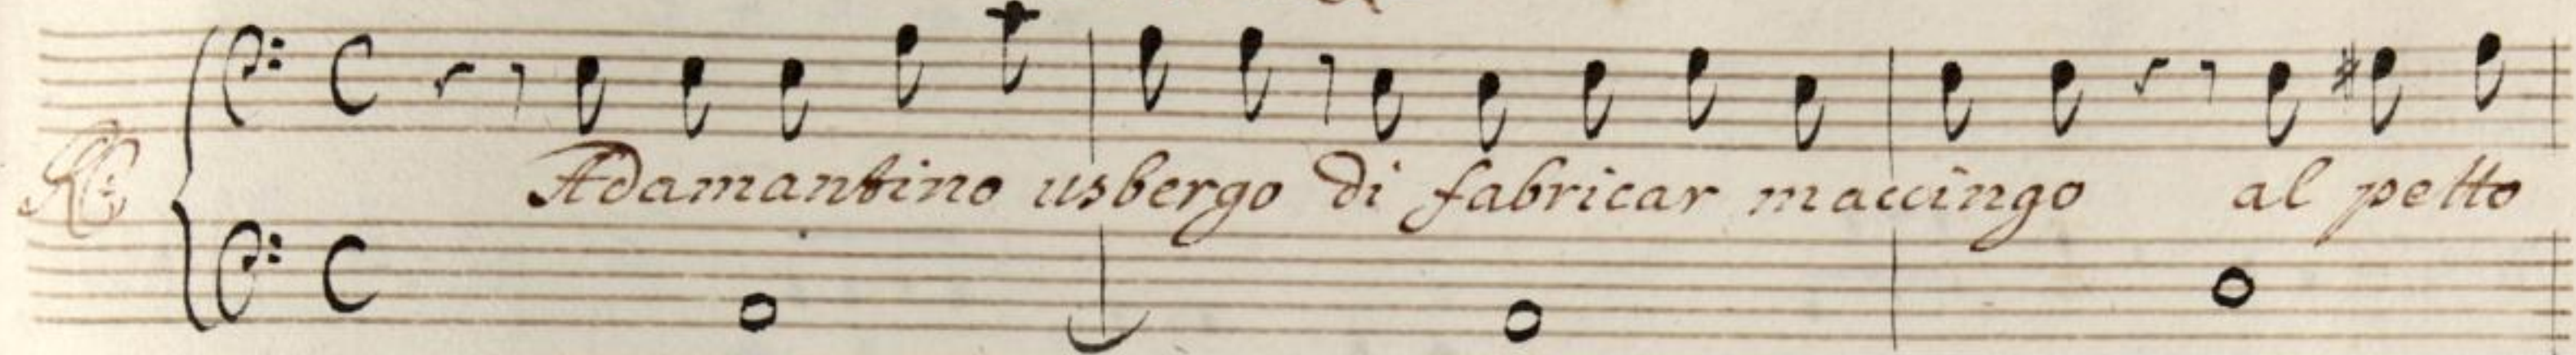 Adamantino usbergo di fabricar maccingo al petto